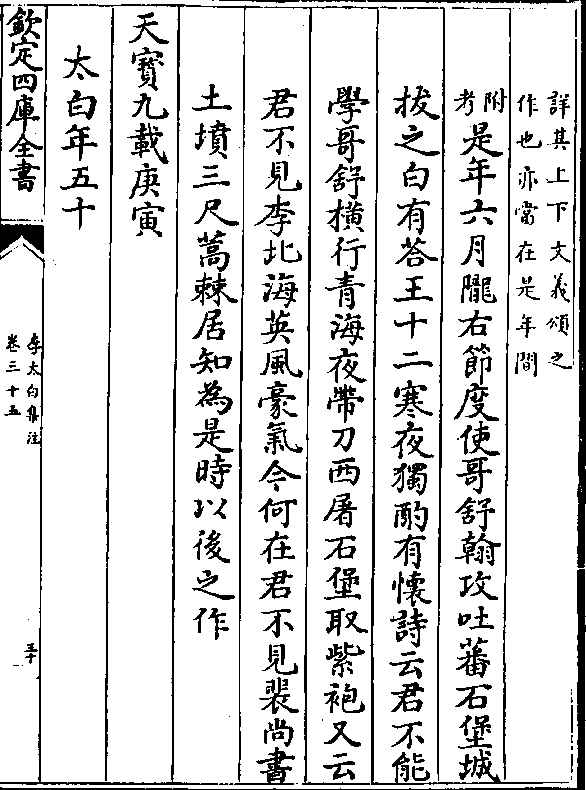 詳其上下文義頌之
作也亦當在是年間
附考是年六月隴右節度使哥舒翰攻吐蕃石堡城
拔之白有荅王十二寒夜獨酌有懷詩云君不能
學哥舒橫行青海夜帶刀西屠石堡取紫袍又云
君不見李北海英風豪氣今何在君不見裴尚書
土墳三尺蒿棘居知為是時以後之作
天寳九載庚寅
太白年五十
欽定四庫全書
李太白集注
卷三十五
五十